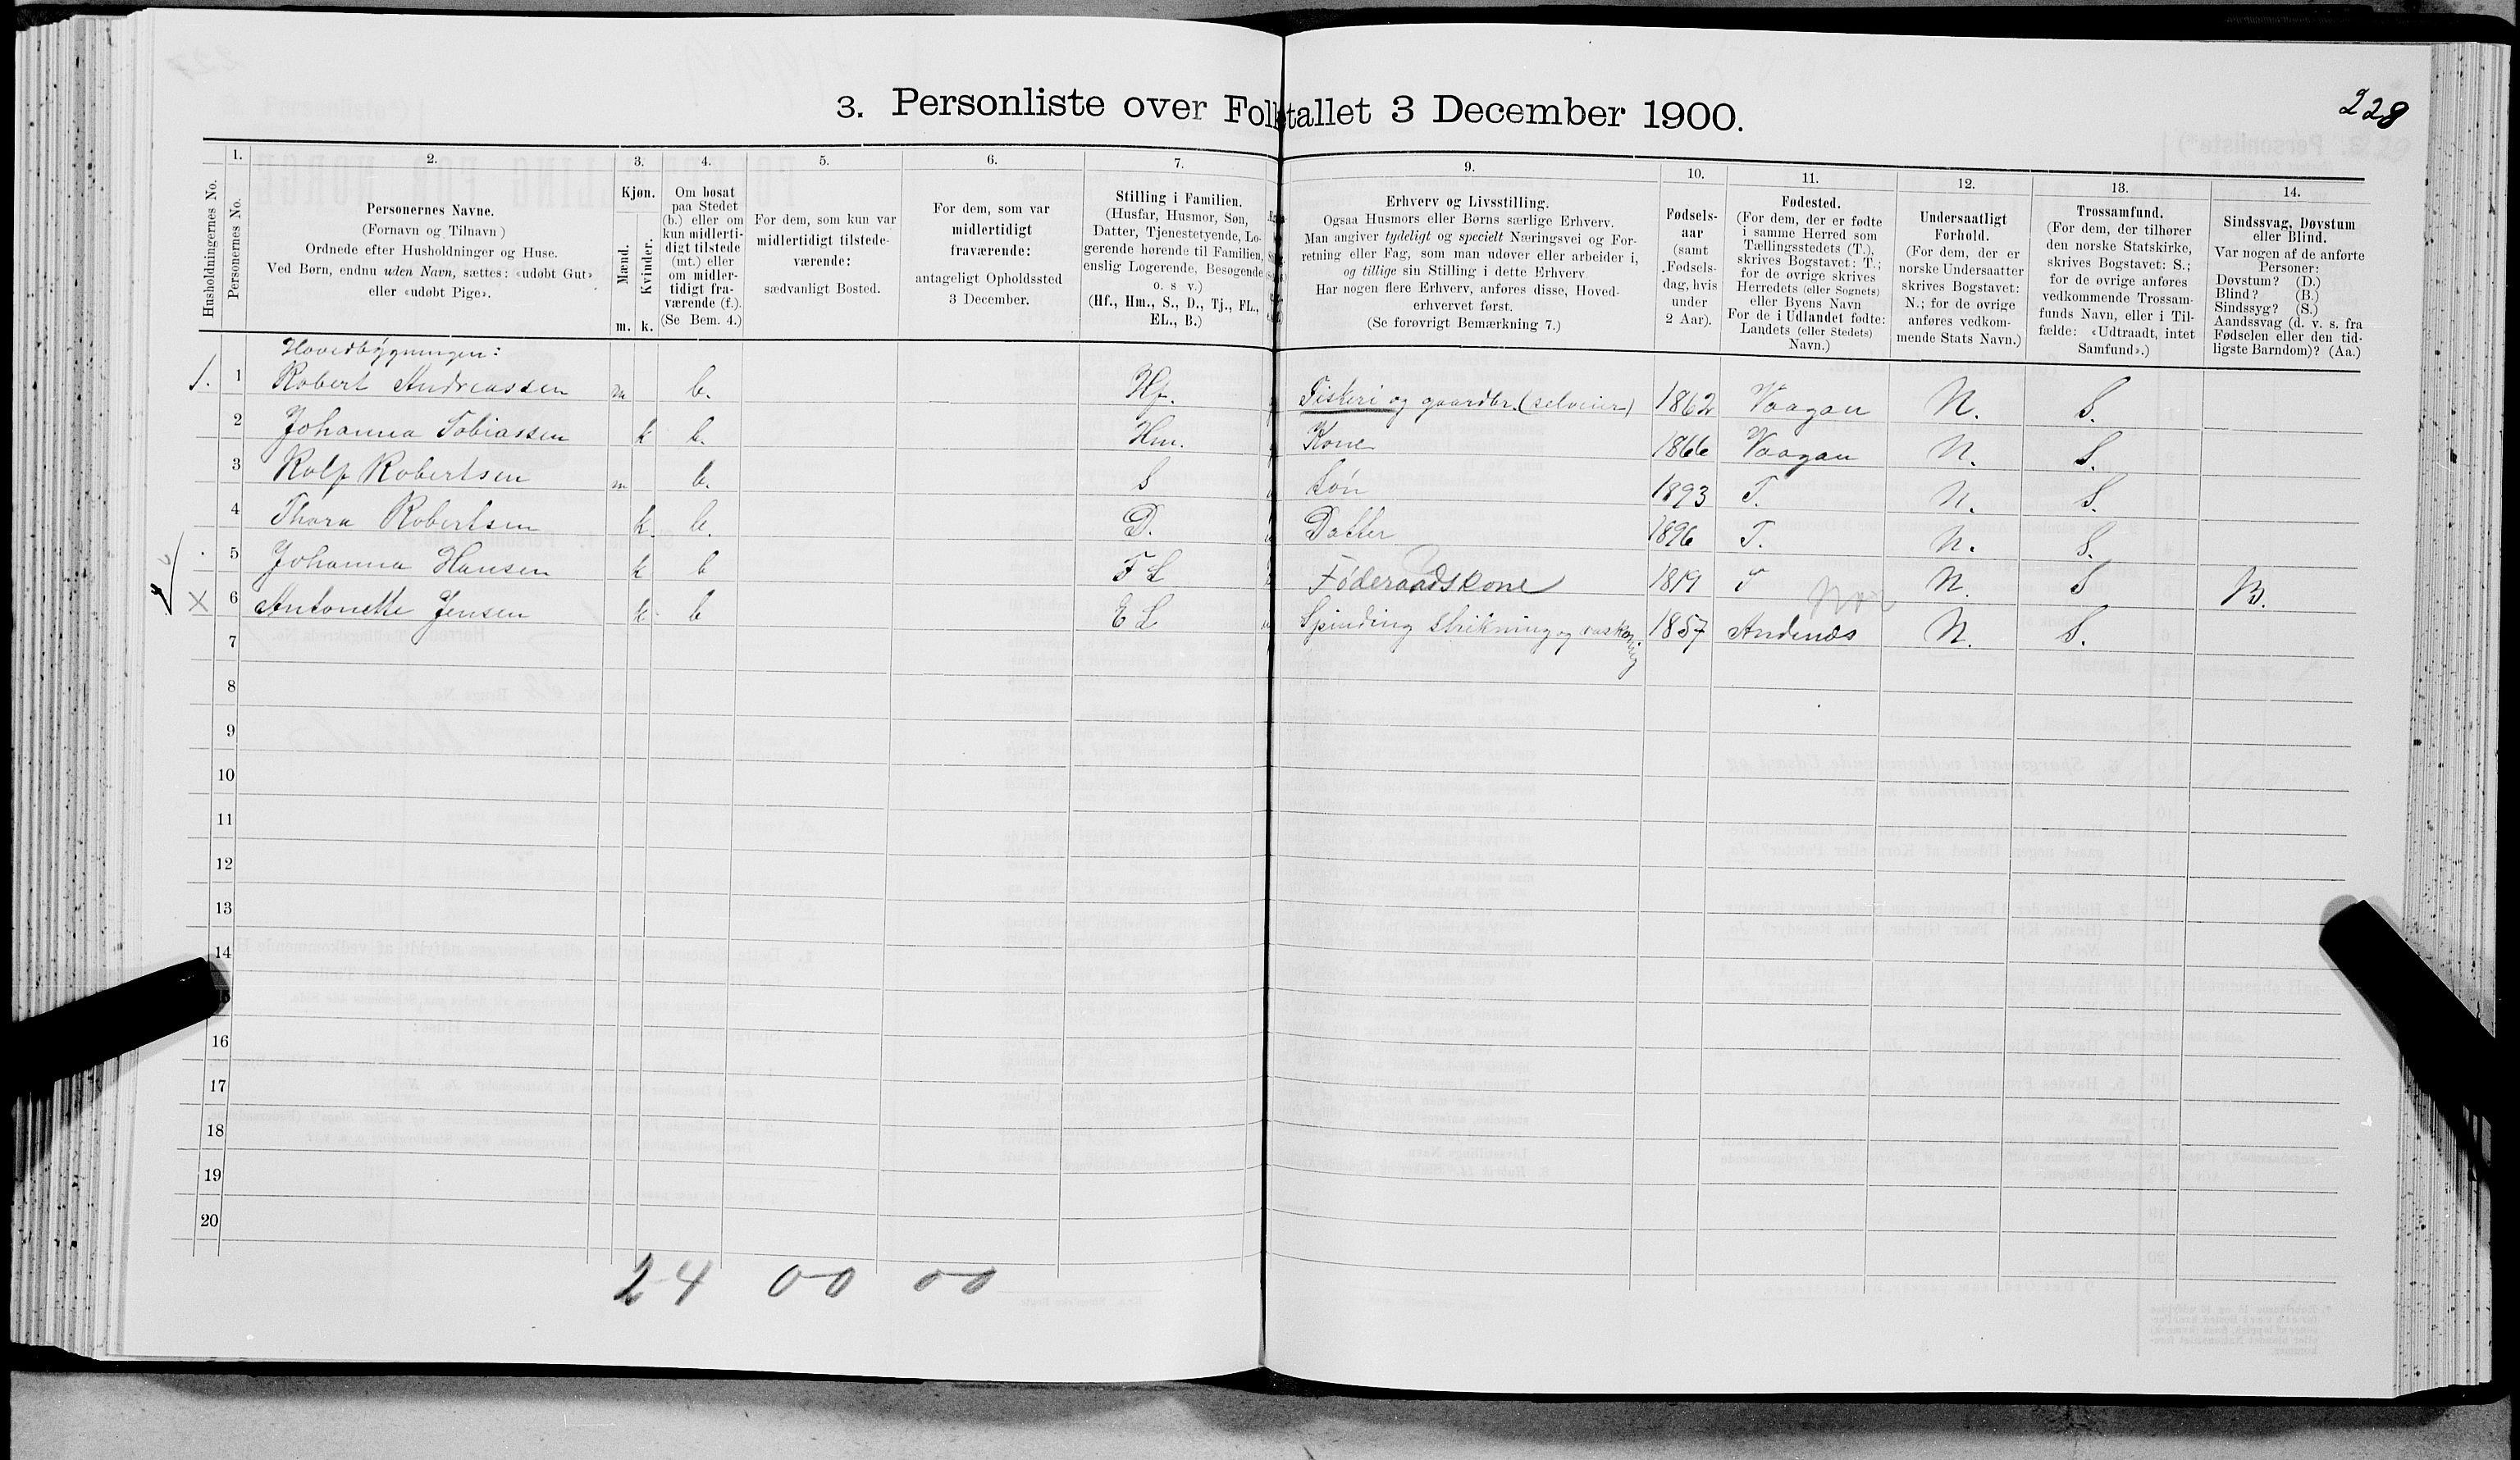 228
3. Personliste over Folketallet 3 December 1900.
Husholdningernes No.
1.
Personernes No.
2.
Personernes Navne.
(Fornavn og Tilnavn)
Ordnede efter Husholdninger og Huse.
Ved Børn, endnu uden Navn, sættes: «udøbt Gut»
eller «udøbt Pige».
3.
Kjøn.
Mænd.
Kvinder.
m. k.
4.
Om bosat
paa Stedet
(b.) eller om
kun midlerti-
digt tilstede
(mt.) eller
om midler-
tidigt fra-
værende (f.).
(Se Bem. 4.)
5.
For dem, som kun var
midlertidigt tilstede-
værende:
sædvanligt Bosted.
6.
For dem, som var
midlertidigt
fraværende:
antageligt Opholdssted
3 December.
7.
Stilling i Familien.
(Husfar, Husmor, Søn,
Datter, Tjenestetyende, Lo-
gerende hørende til Familien,
enslig Logerende, Besøgende
o. s v.)
(Hf., Hm., S., D., Tj., FL.,
EL., B.)
9.
Erhverv og Livsstilling.
Ogsaa Husmors eller Børns særlige Erhverv.
Man angiver tydeligt og specielt Næringsvei og For-
retning eller Fag, som man udøver eller arbeider i,
og tillige sin Stilling i dette Erhverv
Har nogen flere Erhverv, anføres disse, Hoved-
erhvervet først.
(Se forøvrigt Bemærkning 7.)
10.
Fødsels-
aar
(samt
Fødsels-
dag, hvis
under
2 Aar).
11.
Fødested.
(For dem, der er fødte
i samme Herred som
Tællingsstedets (T.),
skrives Bogstavet: T.;
for de øvrige skrives
Herredets (eller Sognets)
eller Byens Navn
For de i Udlandet fødte:
Landets (eller Stedets)
Navn.)
12.
Undersaatligt
Forhold.
(For dem, der er
norske Undersaatter
skrives Bogstavet:
N.; for de øvrige
anføres vedkom-
mende Stats Navn.)
13.
Trossamfund.
(For dem, der tilhører
den norske Statskirke,
skrives Bogstavet: S.;
for de øvrige anføres
vedkommende Trossam-
funds Navn, eller i Til-
fælde: «Udtraadt, intet
Samfund».)
14.
Sindssvag, Døvstum
eller Blind.
Var nogen af de anførte
Personer:
Døvstum? (D.)
Blind? (B.)
Sindssyg? (S.)
Aandssvag (d. v. s. fra
Fødselen eller den tid-
ligste Barndom)? (Aa.)
Hovedbygningen:
1. 1 Robert Andreassen m b. Hf. Fiskeri og gaardbr. (selveier) 1862 Vaagan N. S.
2 Johanna Tobiassen k b. Hm. Kone 1866 Vaagan N. S.
3 Rolf Robertsen m b. S Søn 1893 T. N. S.
4 Thora Robertsen k. b. D. Datter 1896 T. N. S.
5 Johanna Hansen k b FL Føderaadskone 1819 T N. S B.
X 6 Antonette Jensen k b EL Spinding strikning og vaskning 1857 Andenæs N. S.
7
8
9
10
11
12
13
14
16
17
18
19
20
24 00 00